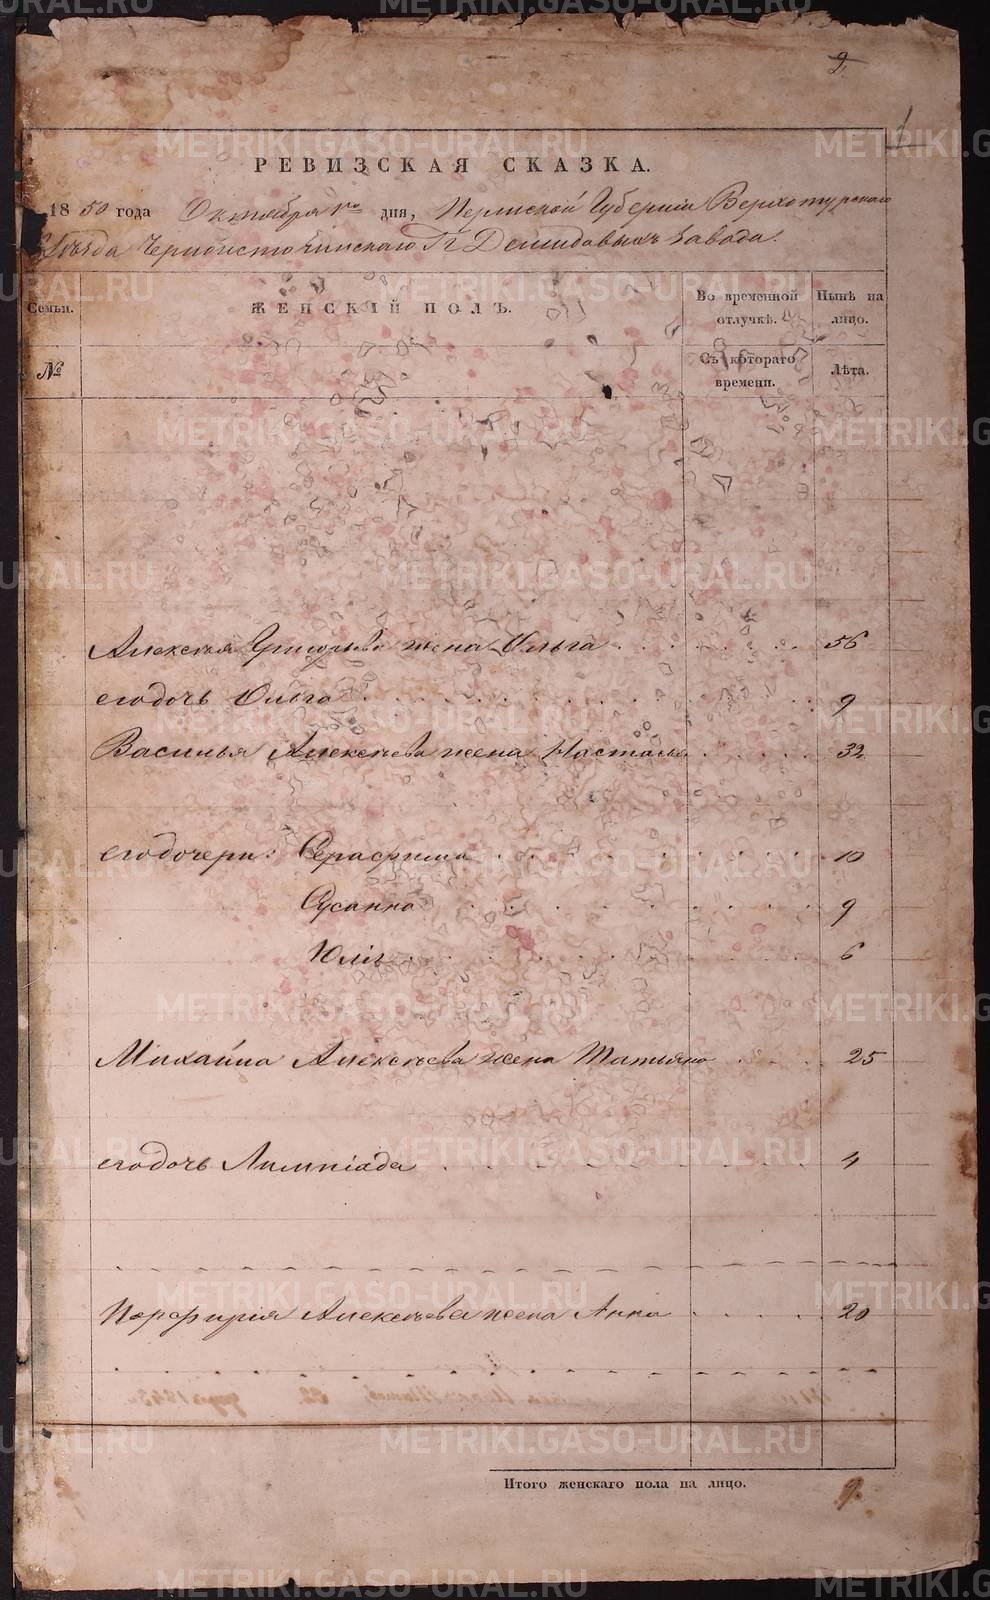 2
1
РЕВИЗСКАЯ СКАЗКА.
1850 года Октября 1го дня, Пермской Губерніи Верхотурскаго
Уѣзда Черноисточинскаго Гг Демидовыхъ завода.
Семьи. ЖЕНСКІЙ ПОЛЪ. Во временной отлучкѣ. Нынѣ на лицо.
№ Съ котораго времени. Лѣта.
Алексѣя Григорьева жена Ольга 56
его дочь Ольга 9
Василья Алексѣева жена Настасья 32
его дочери: Серафима 10
Сусанна 9
Юлія 6
Михайла Алексѣева жена Татьяна 25
его дочь Лимпіада 4
Порфирія Алексѣева жена Анна 20
Итого женскаго пола на лицо. 9.
METRIKI.GASO-URAL.RU